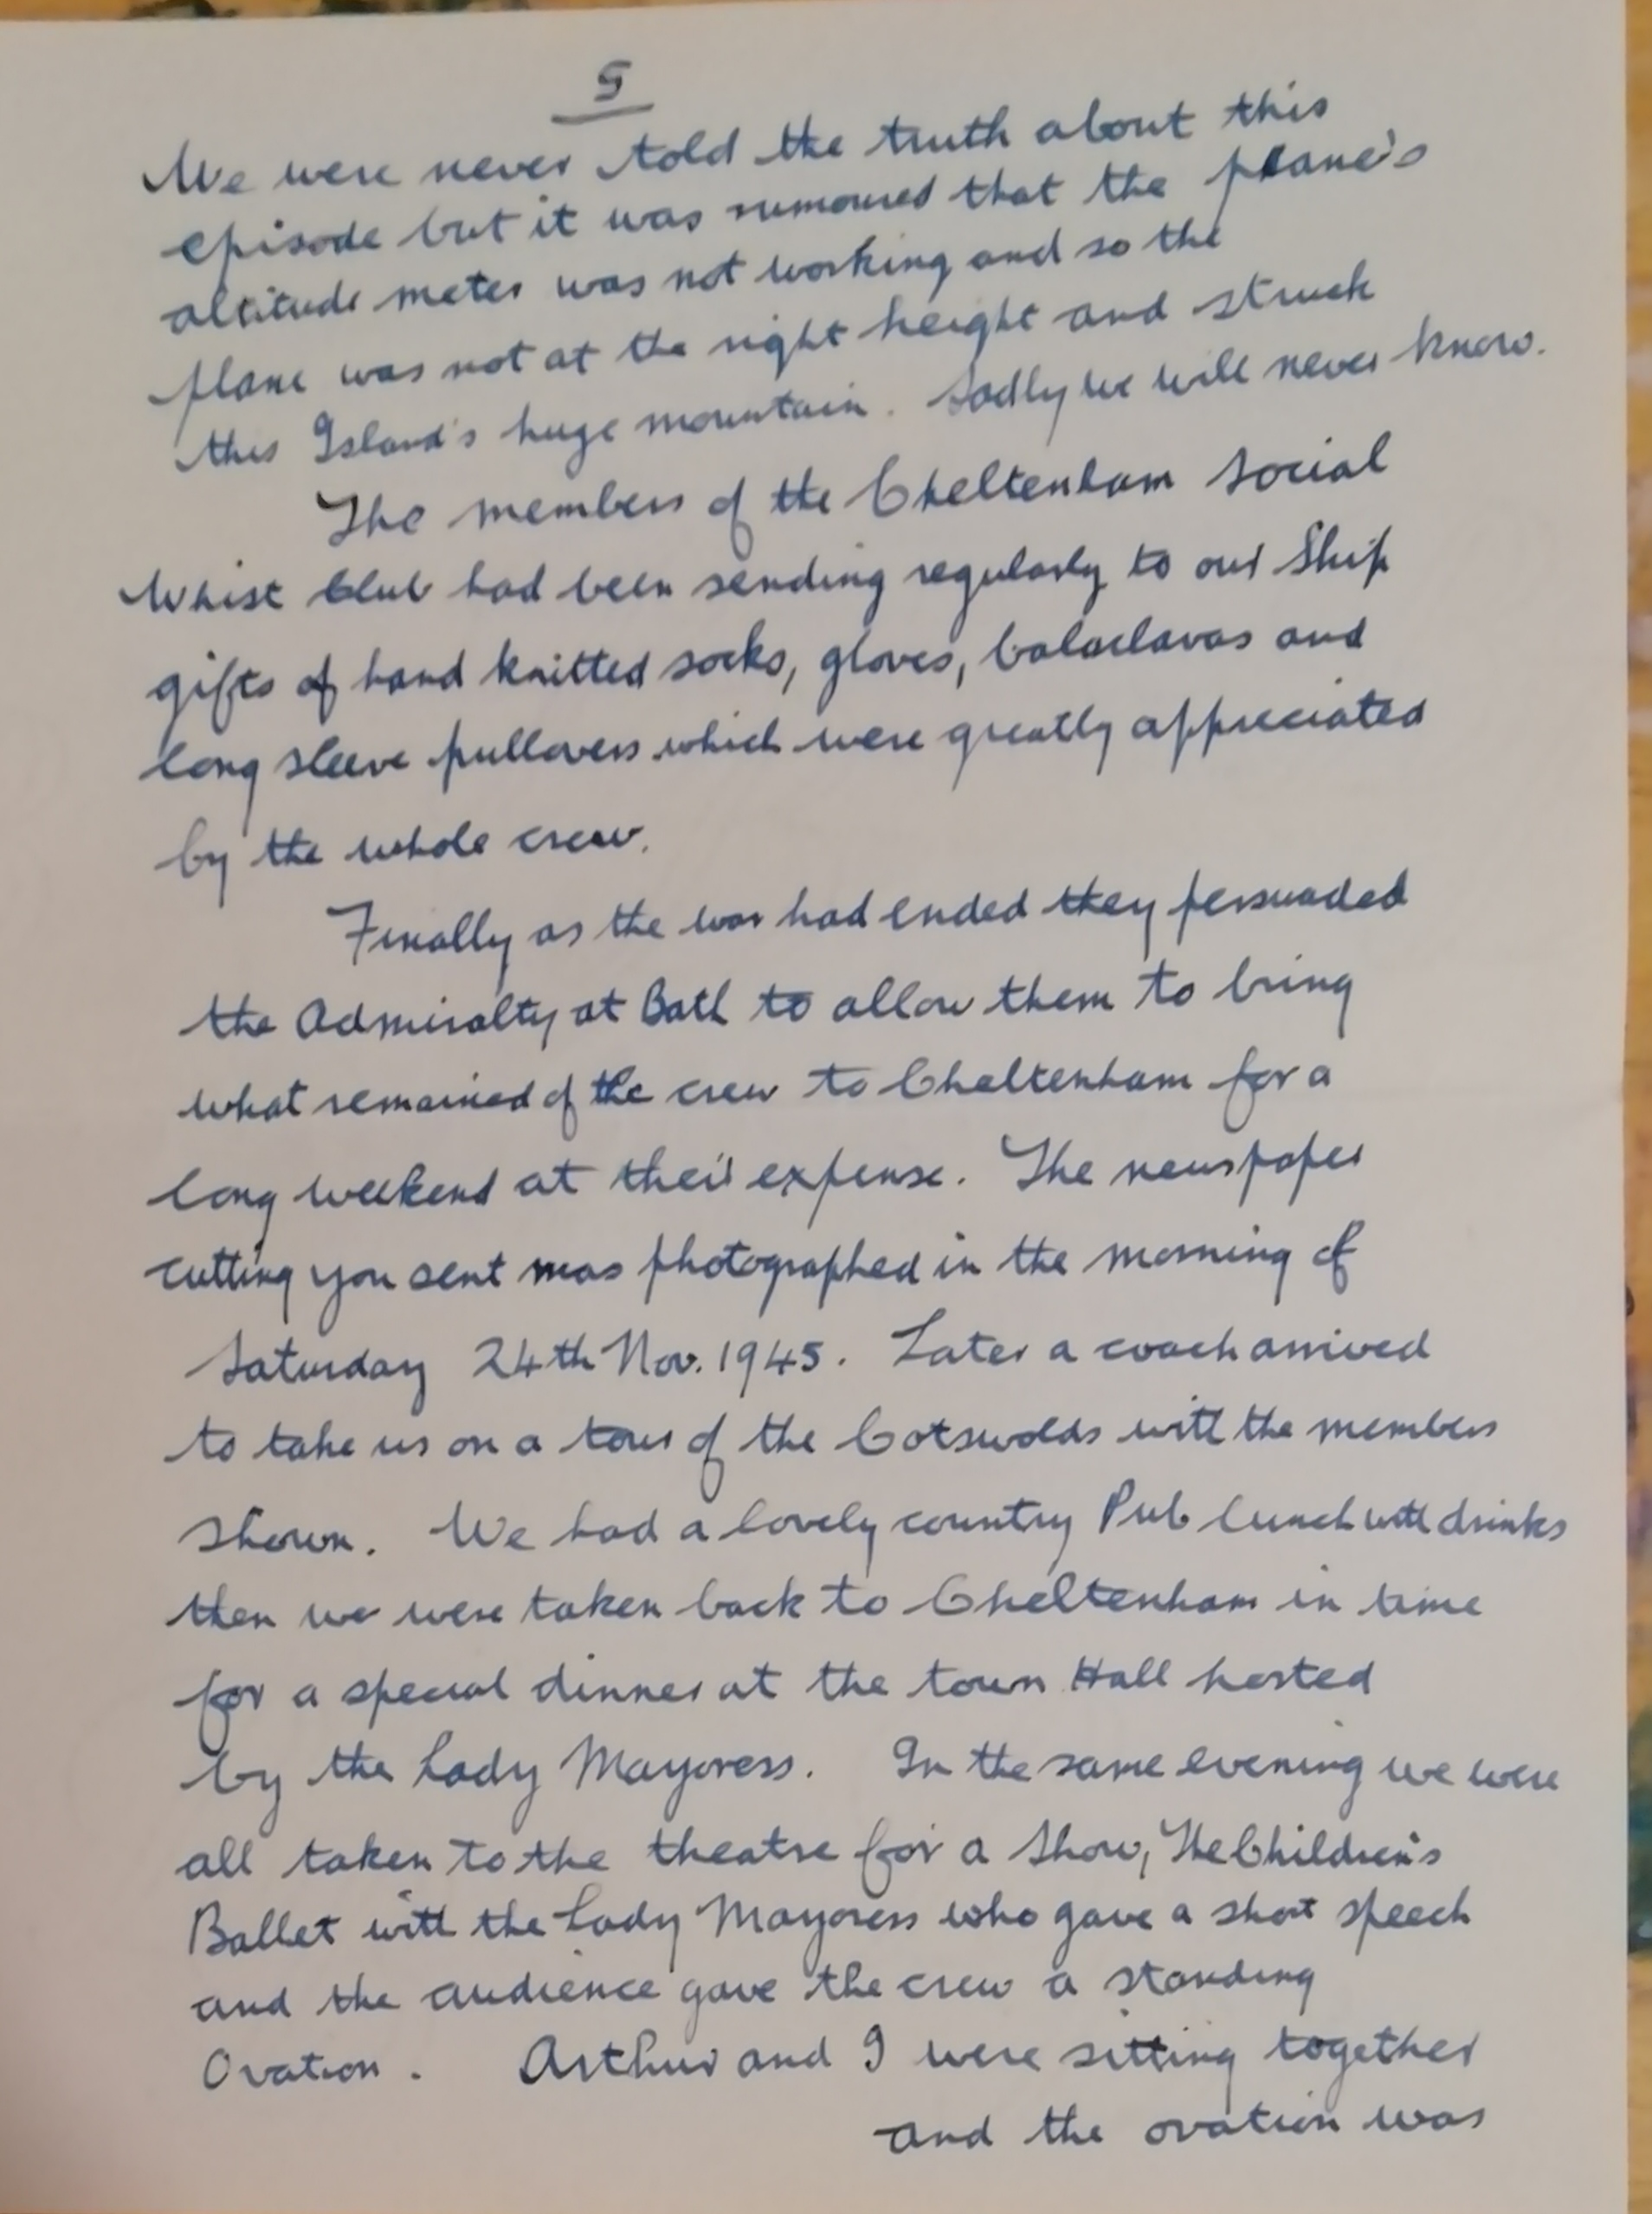 5
We were never told the truth about this
episode but it was rumoured that the plane's
altitude meter was not working and so the
plane was not at the right height and struck
this Island's huge mountain. Sadly we will never know.
The members of the Cheltenham Social
Whist Club had been sending regularly to our Ship
gifts of hand knitted socks, gloves, balaclavas and
long sleeve pullovers which were greatly appreciated
by the whole crew.
Finally as the war had ended they persuaded
the Admiralty at Bath to allow them to bring
what remained of the crew to Cheltenham for a
long weekend at their expense. The newspaper
cutting you sent was photographed in the morning of
Saturday 24th Nov. 1945. Later a coach arrived
to take us on a tour of the Cotswolds with the members
shown. We had a lovely country Pub lunch with drinks
then we were taken back to Cheltenham in time
for a special dinner at the town Hall hosted
by the Lady Mayoress. In the same evening we were
all taken to the theatre for a Show, The Children's
Ballet with the Lady Mayoress who gave a short speech
and the audience gave the crew a standing
Ovation. Arthur and I were sitting together
and the ovation was